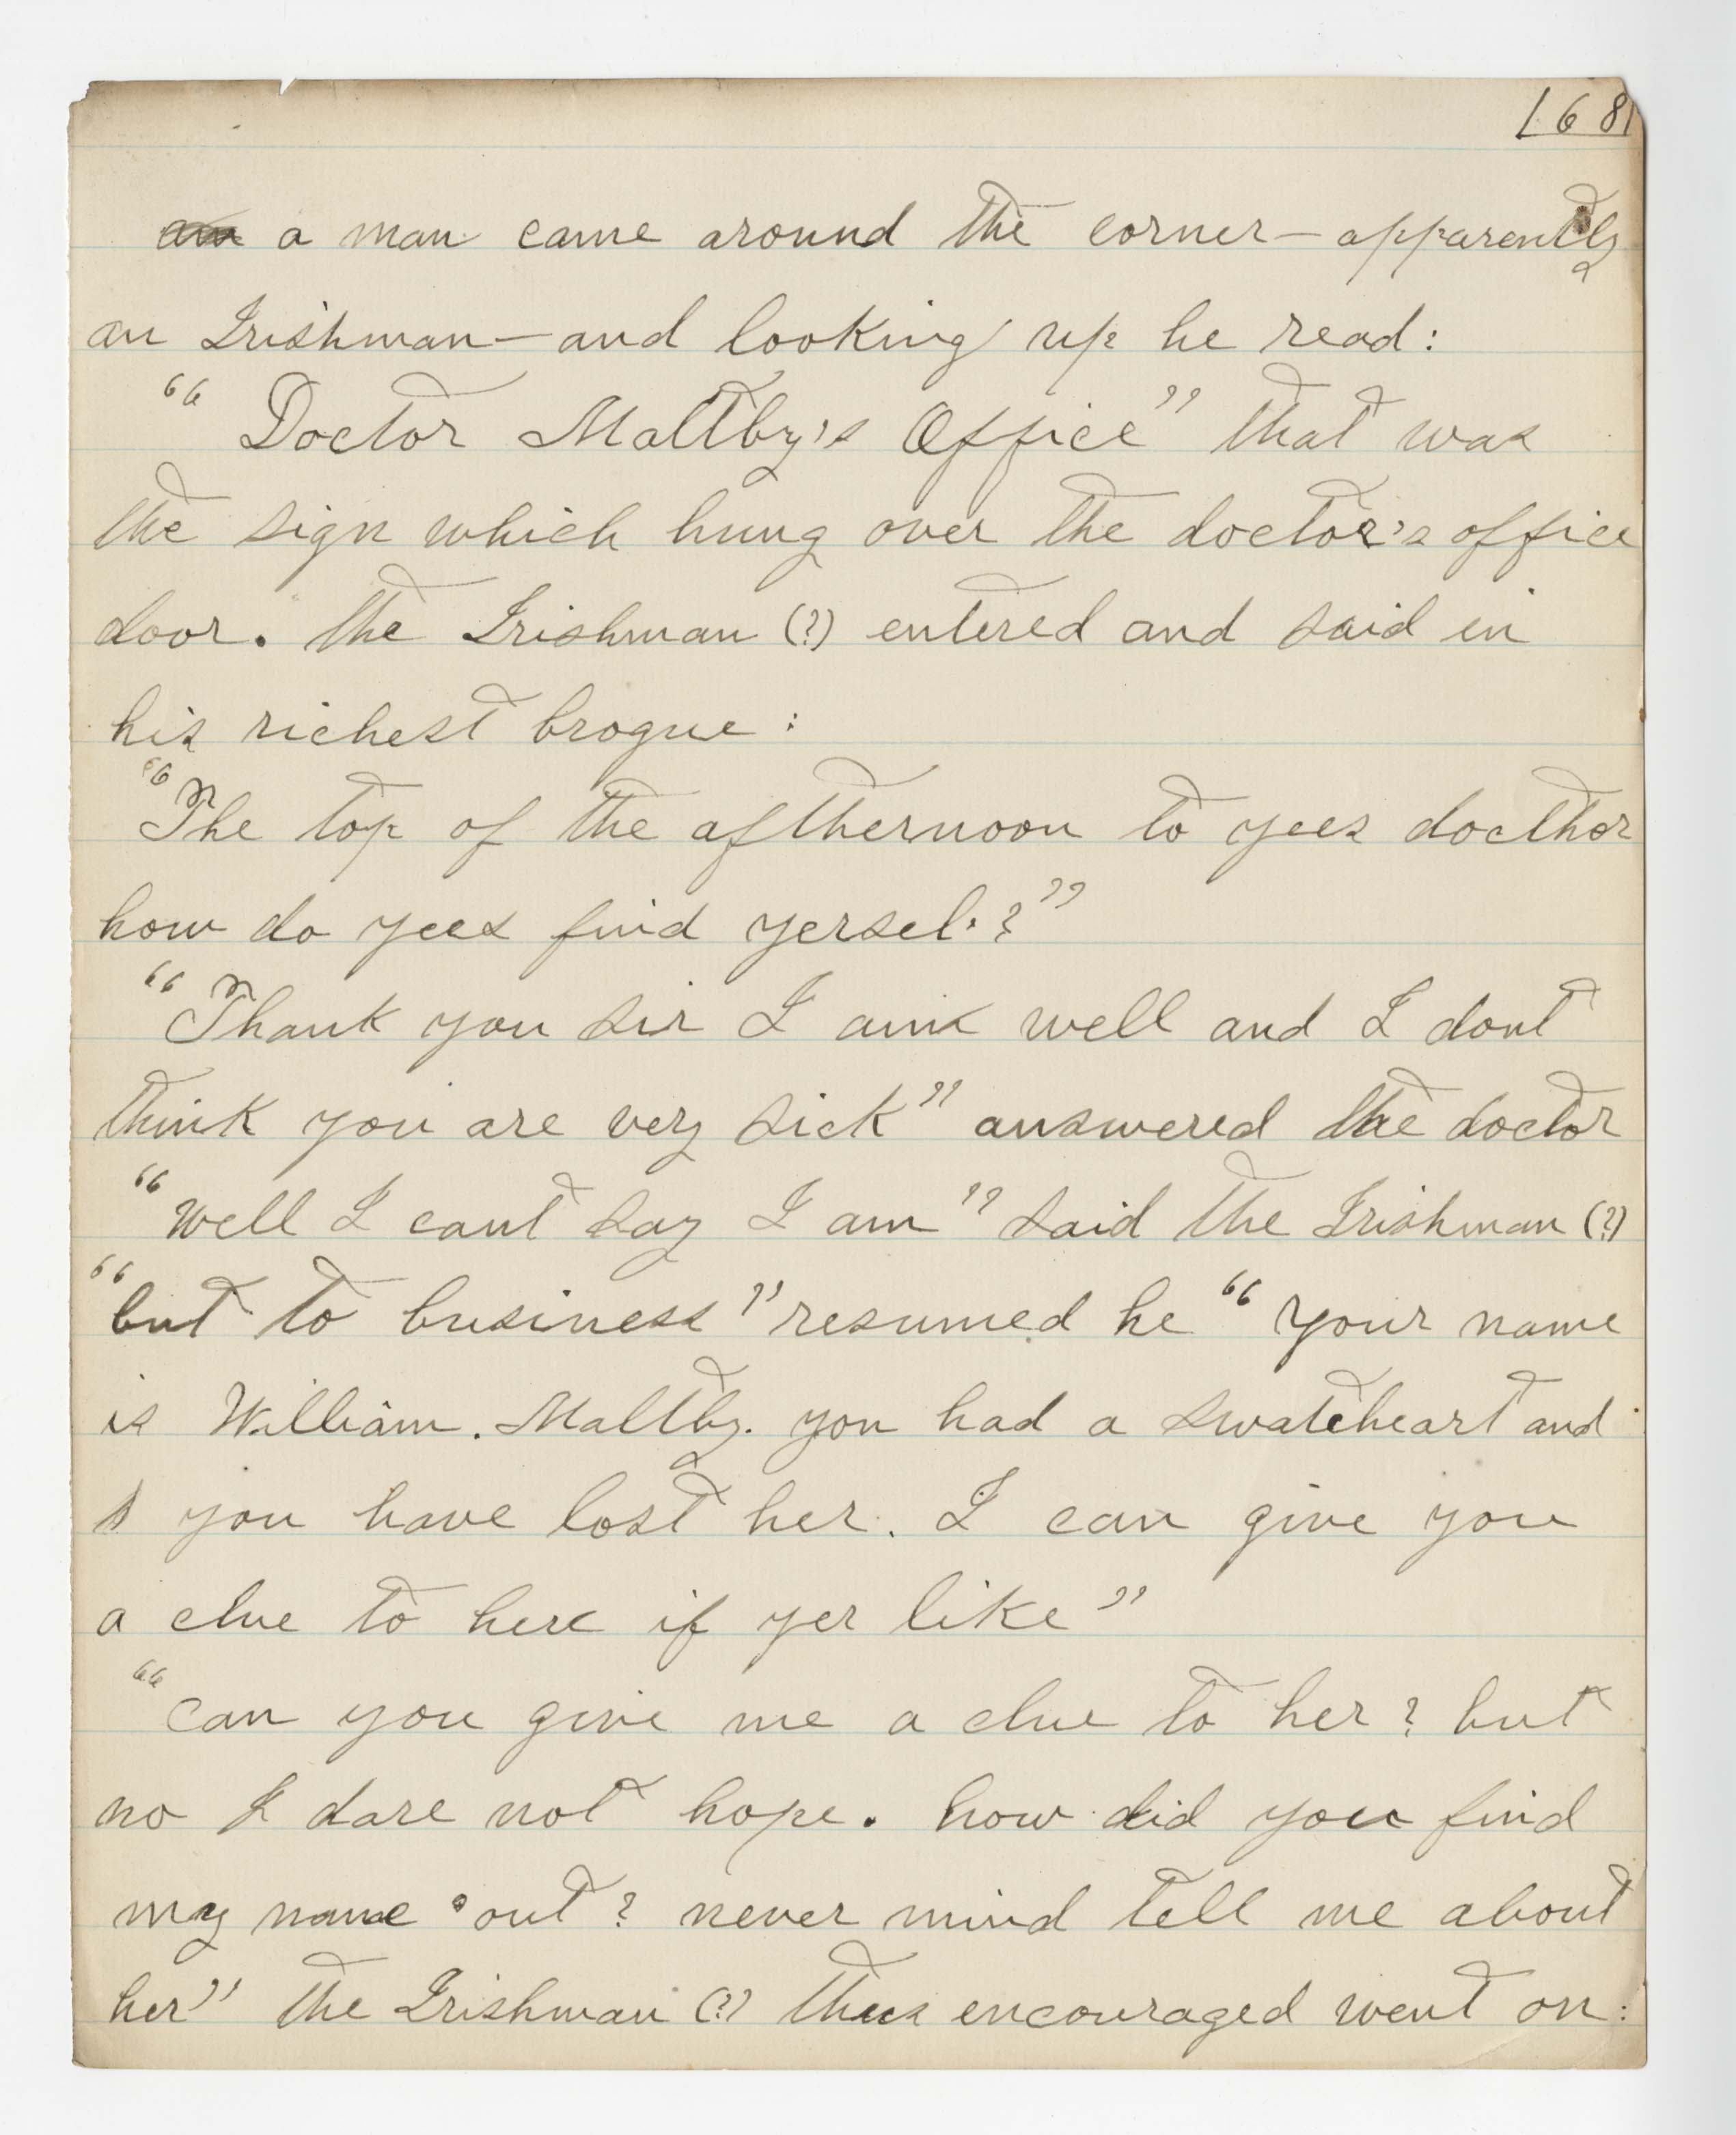 168
a man came around the corner—apparently
an Irishman—and looking up he read:
"Doctor Maltby's Office" that was
the sign which hung over the doctor's office
door. the Irishman (?) entered and said in
his richest brogue:
"The top of the afthernoon to yees docthor
how do yees find yersel.?"
"Thank you sir I am well and I dont
think you are very sick" answered the doctor
"well I cant say I am" said the Irishman (?)
"but to business" resumed he "your name
is William. Maltby. you had a swateheart and
you have lost her. I can give you
a clue to here if yer like"
"can you give me a clue to her? but
no I dare not hope. how did you find
my name out? never mind tell me about
her" the Irishman (?) thus encouraged went on: